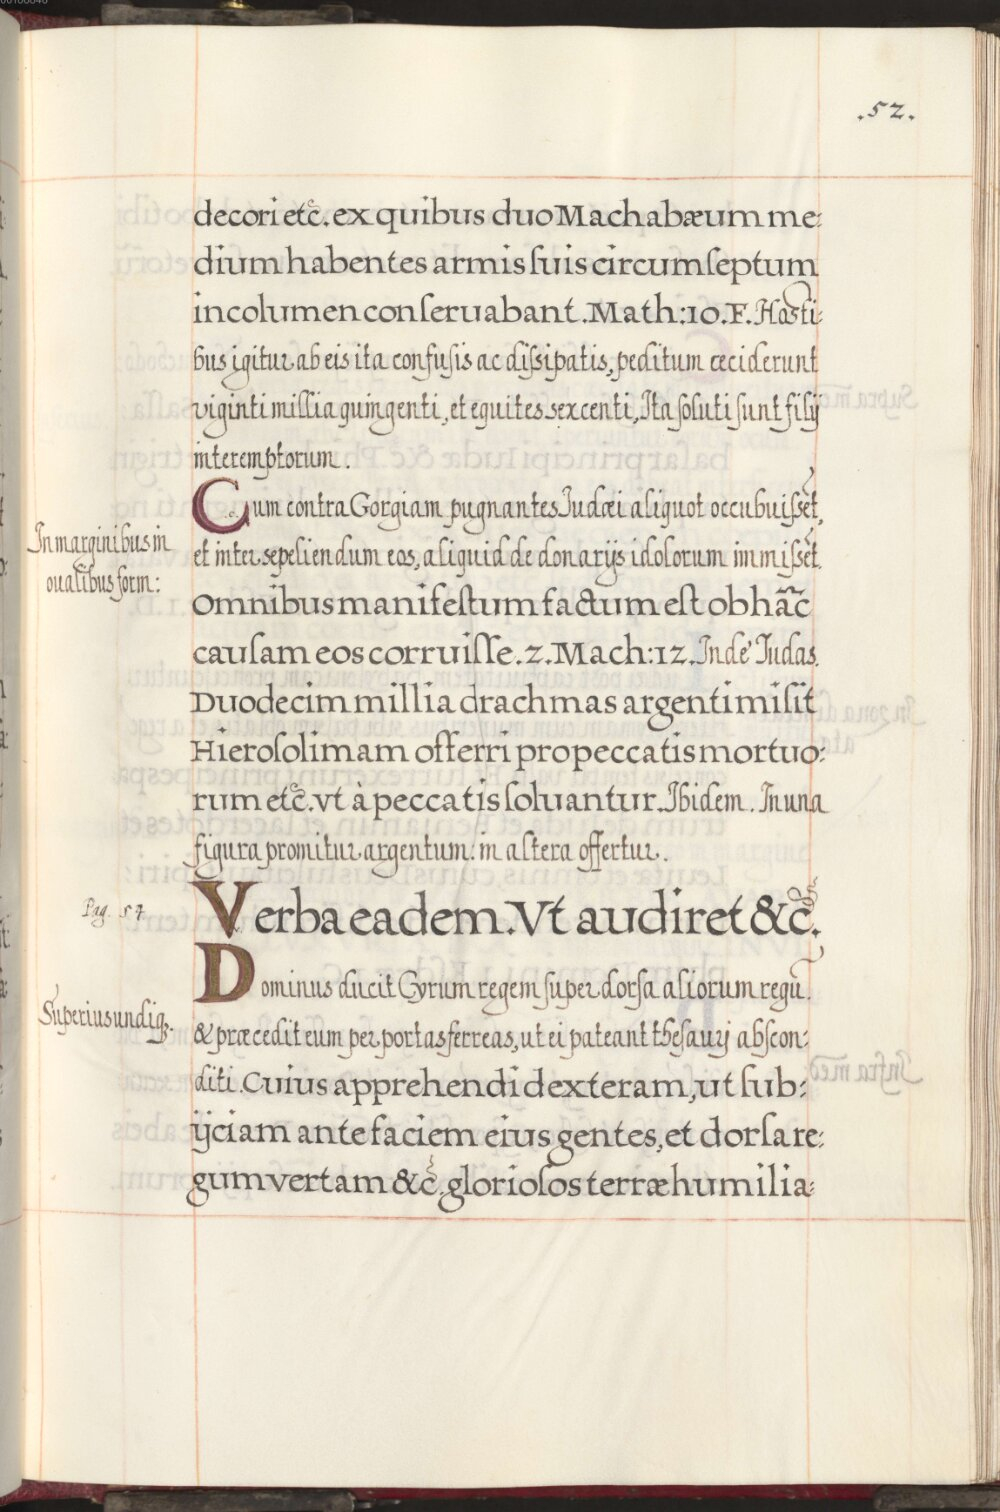 .52.
decori etc̃. ex quibus duo Machabæum me:
dium habentes armis suis circumseptum
incolumen conseruabant. Math: 10. F. Hosti:
bus igitur ab eis ita confusis ac dissipatis, peditum ceciderunt
viginti millia quingenti, et equites sexcenti, Ita soluti sunt filij
interemptorum.
Cum contra Gorgiam pugnantes Judæi aliquot occubuisset̃,
In marginibus in
et inter sepeliendum eos, aliquid de donarijs idolorum immisset̃.
oualibus form:
Omnibus manifestum factum est ob hãc
causam eos corruisse. 2. Mach: 12. Inde Judas.
Duodecim millia drachmas argenti misit
Hierosolimam offerri pro peccatis mortuo:
rum etc̃. vt à peccatis soluantur. Ibidem. In una
figura promitur argentum: in altera offertur.
Pag. 57
Verba eadem. Vt audiret &c̃.
Dominus ducit Cyrum regem super dorsa aliorum regũ.
Superius undiq;.
& præcedit eum per portas ferreas, ut ei pateant thesaurj abscon:
diti. Cuius apprehendi dexteram, ut sub:
ijciam ante faciem eius gentes, et dorsa re:
gum vertam &c̃. gloriosos terræ humilia: